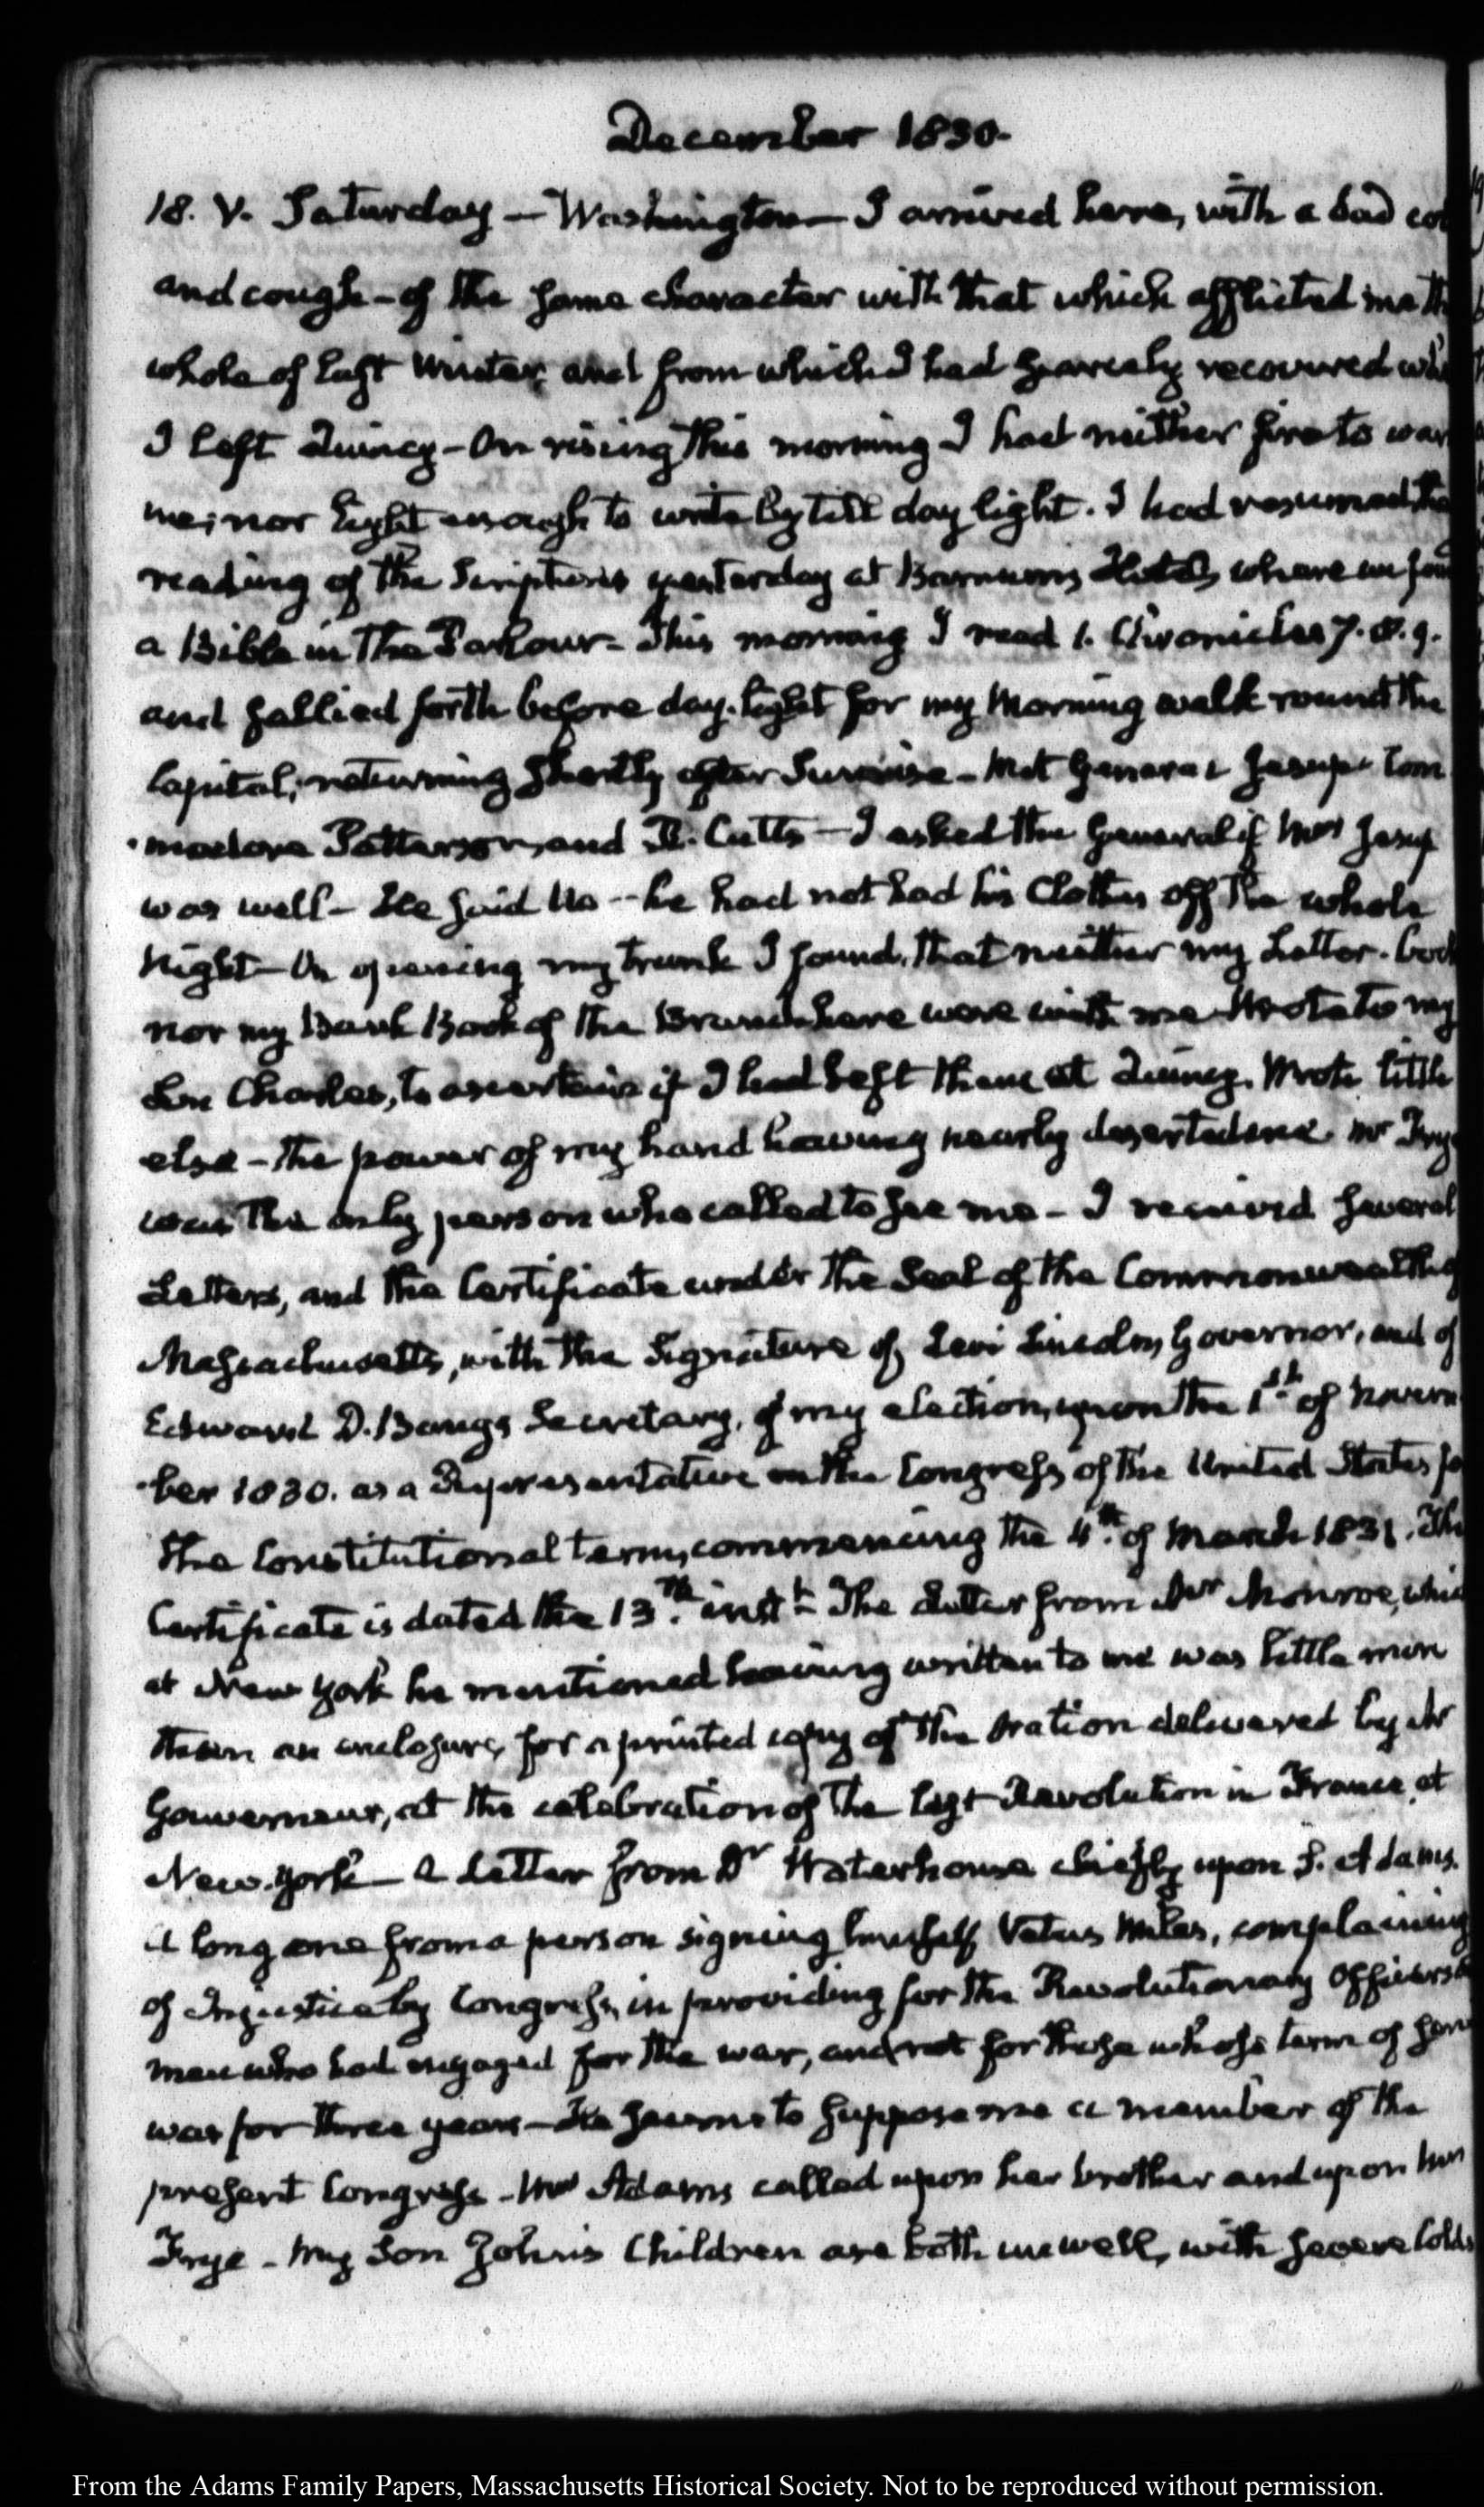 December 1830.
18. V. Saturday — Washington — I arrived here, with a bad co
and cough - of the same character with that which afflicted me th
whole of last Winter, and from which I had scarcely recovered wh
I left Quincy - On rising this morning I had neither fire to war
me, nor light enough to write by till day light. I had resumed the
reading of the Scriptures yesterday at Barnum's Hotel, where we fou
a Bible in the Parlour - This morning I read 1. Chronicles 7. 8. 9.
and sallied forth before day-light for my Morning walk round the
Capitol; returning shortly after Sunrise - Met General Jesup, Com
-modore Patterson, and R. Cutts — I asked the General if Mrs Jesup
was well - He said No -- he had not had his Clothes off the whole
Night - On opening my trunk I found, that neither my Letter-Book
nor my Bank Book of the Branch here were with me Wrote to my
Son Charles, to ascertain if I had left them at Quincy. Wrote little
else - the power of my hand having nearly deserted me. Mr Frye
was the only person who called to see me - I received several
Letters, and the Certificate under the Seal of the Commonwealth of
Massachusetts, with the Signature of Levi Lincoln, Governor, and of
Edward D. Bangs Secretary, of my election, upon the 1st of Novem
-ber 1830. as a Representative in the Congress of the United States fo
the Constitutional term, commencing the 4th. of March 1831. The
Certificate is dated the 13th. instt - The Letter from Mr Monroe, whic
at New York he mentioned having written to me was little more
than an enclosure, for a printed copy of the Oration delivered by Mr
Gouverneur, at the celebration of the last Revolution in France, at
New-York — A Letter from Dr Waterhouse chiefly upon S. Adams.
A long one from a person signing himself Vetus Miles, complaining
of Injustice by Congress, in providing for the Revolutionary Officers &
men who had engaged for the war, and not for those whose term of serv
was for three years - He seems to suppose me a member of the
present Congress - Mrs Adams called upon her brother and upon Mrs
Frye - My Son John's Children are both unwell, with severe Colds
From the Adams Family Papers, Massachusetts Historical Society. Not to be reproduced without permission.